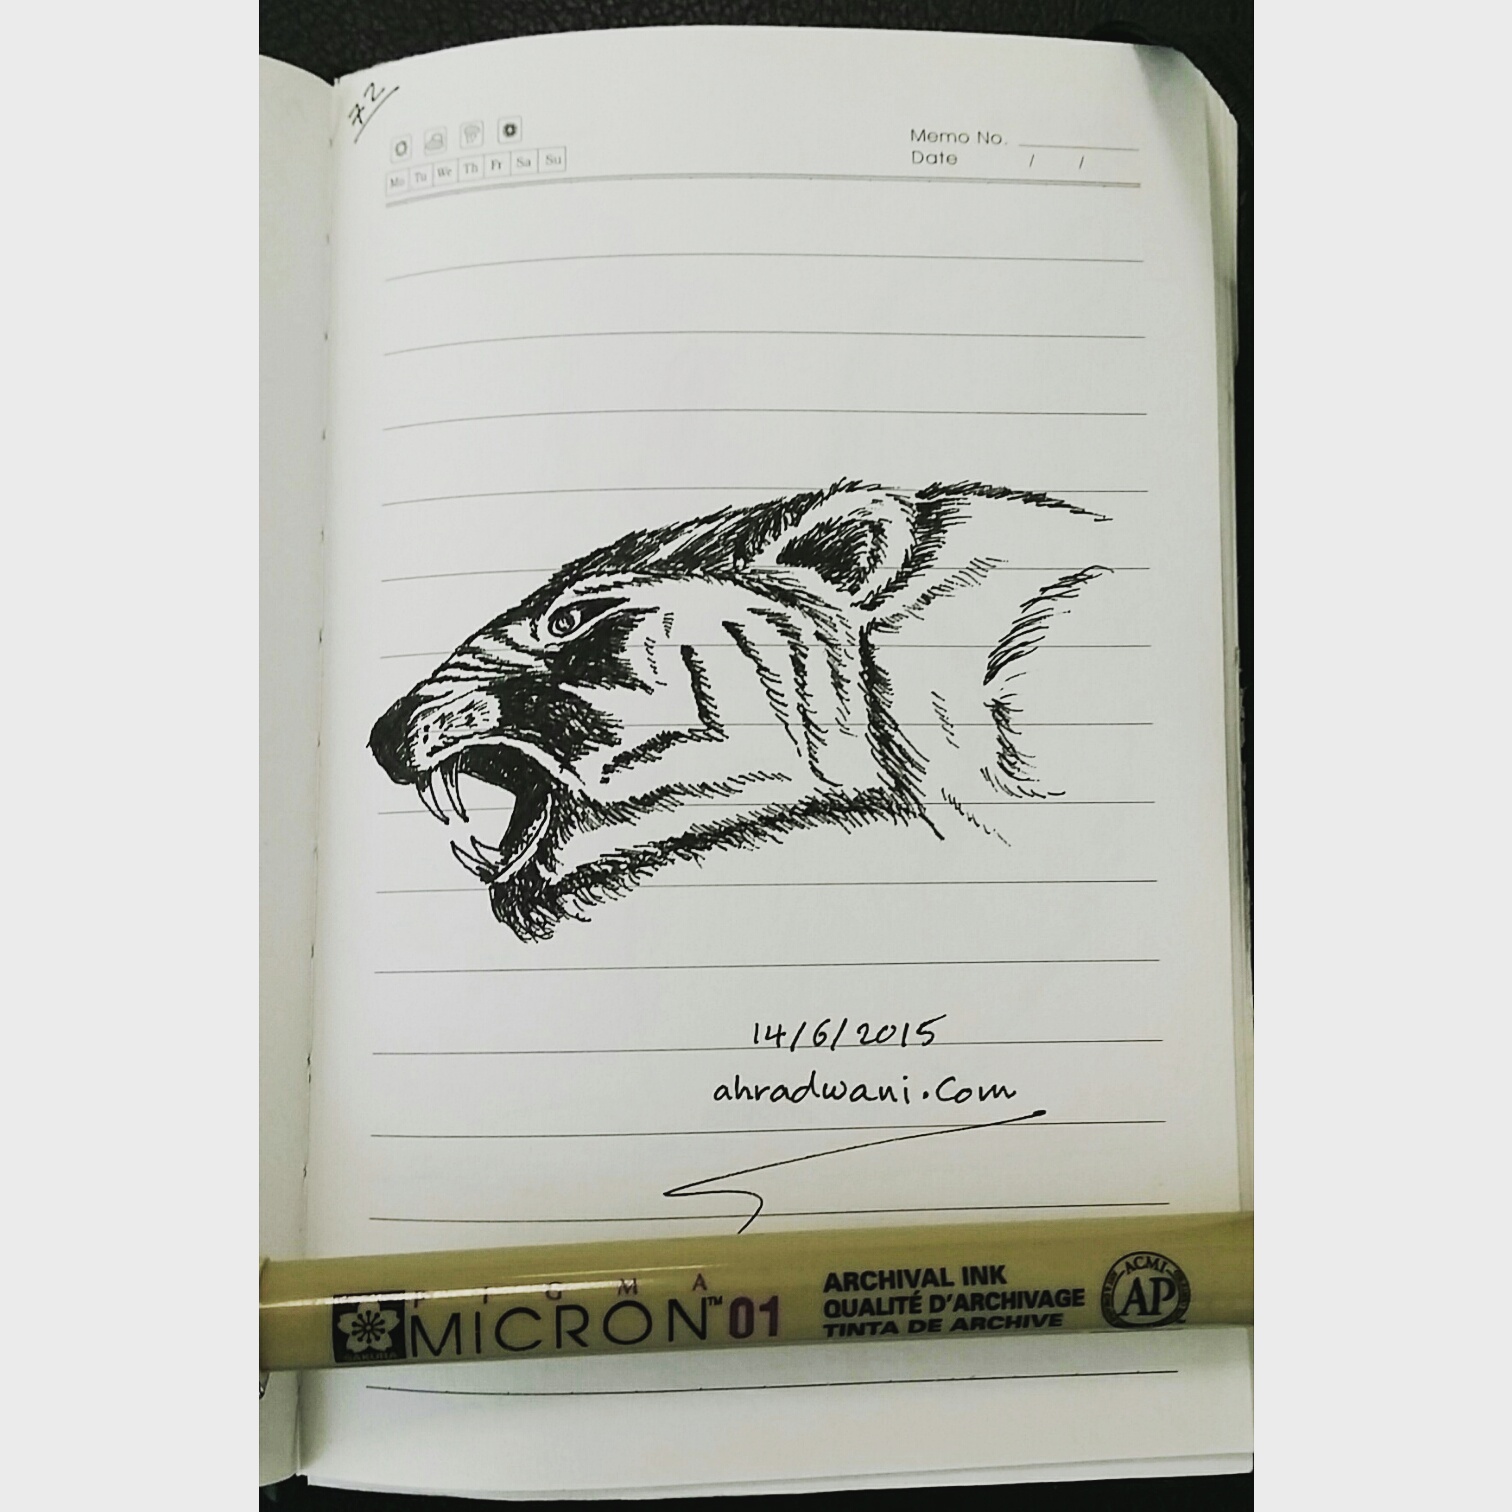 72
Memo No.
Date / /
Mo Tu We Th Fr Sa Su
14/6/2015
ahradwani.com
PIGMA
MICRON™ 01
SAKURA
ARCHIVAL INK
QUALITÉ D'ARCHIVAGE
TINTA DE ARCHIVE
ACMI
AP